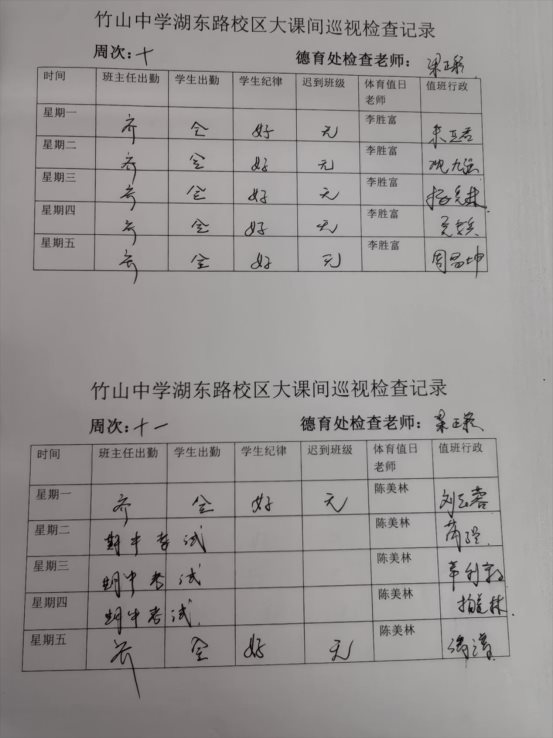 竹山中学湖东路校区大课间巡视检查记录
周次：十 德育处检查老师：
时间 班主任出勤 学生出勤 学生纪律 迟到班级 体育值日老师 值班行政
星期一 齐 全 好 无 李胜富
星期二 齐 全 好 无 李胜富
星期三 齐 全 好 无 李胜富
星期四 齐 全 好 无 李胜富
星期五 齐 全 好 无 李胜富 周昌坤
竹山中学湖东路校区大课间巡视检查记录
周次：十一 德育处检查老师：
时间 班主任出勤 学生出勤 学生纪律 迟到班级 体育值日老师 值班行政
星期一 齐 全 好 无 陈美林
星期二 期中考试 陈美林
星期三 期中考试 陈美林
星期四 期中考试 陈美林
星期五 齐 全 好 无 陈美林